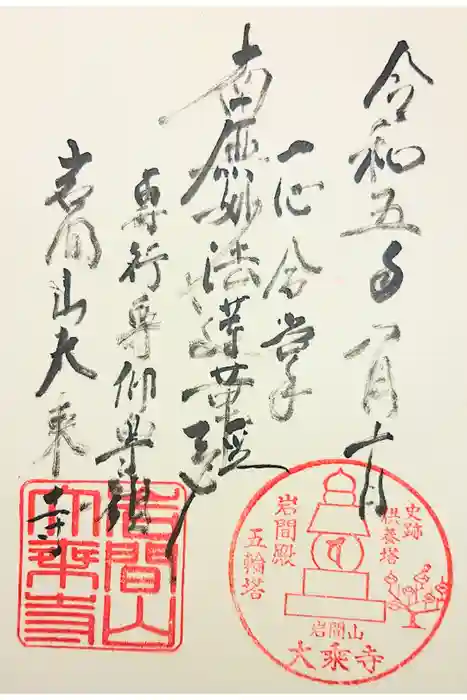 令和五年八月十日
一心合掌
南無妙法蓮華経
専行専仰
岩間山大乗寺
史跡
供養塔
岩間殿
五輪塔
岩間山
大乗寺
岩間山
大乗寺